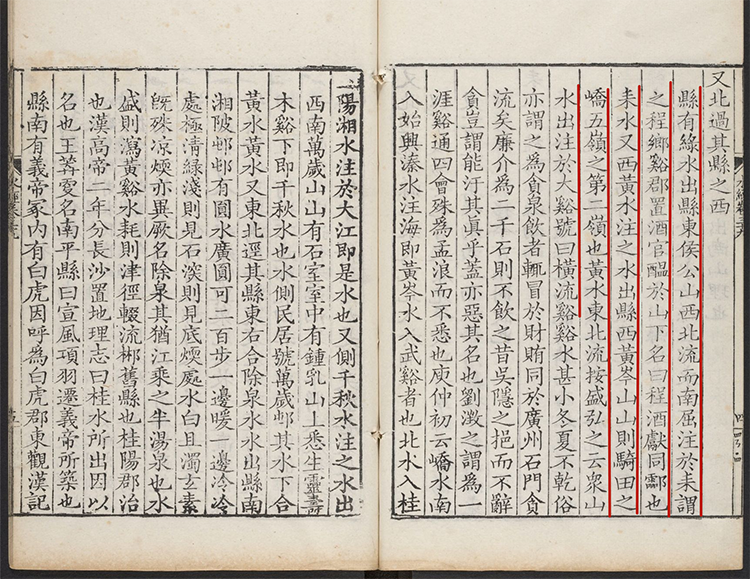 又北過其縣之西
縣有綠水出縣東侯公山西北流而南屈注於耒謂
之程鄉谿郡置酒官醞於山下名曰程酒獻同酃也
耒水又西黃水注之水出縣西黃岑山山則騎田之
嶠五嶺之第二嶺也黃水東北流按盛弘之云衆山
水出注於大谿號曰橫流谿谿水甚小冬夏不乾俗
亦謂之為貪泉飲者輒冒於財賄同於廣州石門貪
流矣廉介為二千石則不飲之昔吳隱之挹而不辭
貪豈謂能汙其真乎蓋亦惡其名也劉澂之謂為一
涯谿通四會殊為孟浪而不悉也庾仲初云嶠水南
入始興溱水注海即黃岑水入武谿者也北水入桂
陽湘水注於大江即是水也又側千秋水注之水出
西南萬歲山山有石室室中有鍾乳山上悉生靈壽
木谿下即千秋水也水側民居號萬歲邨其水下合
黃水黃水又東北逕其縣東右合除泉水水出縣南
湘陂邨邨有圓水廣圓可二百步一邊暖一邊冷冷
處極清綠淺則見石深則見底煖處水白且濁玄素
旣殊凉煖亦異厥名除泉其猶江乘之半湯泉也水
盛則瀉黃谿水耗則津徑輟流郴舊縣也桂陽郡治
也漢高帝二年分長沙置地理志曰桂水所出因以
名也王莽更名南平縣曰宣風項羽遷義帝所築也
縣南有義帝冢内有白虎因呼為白虎郡東觀漢記